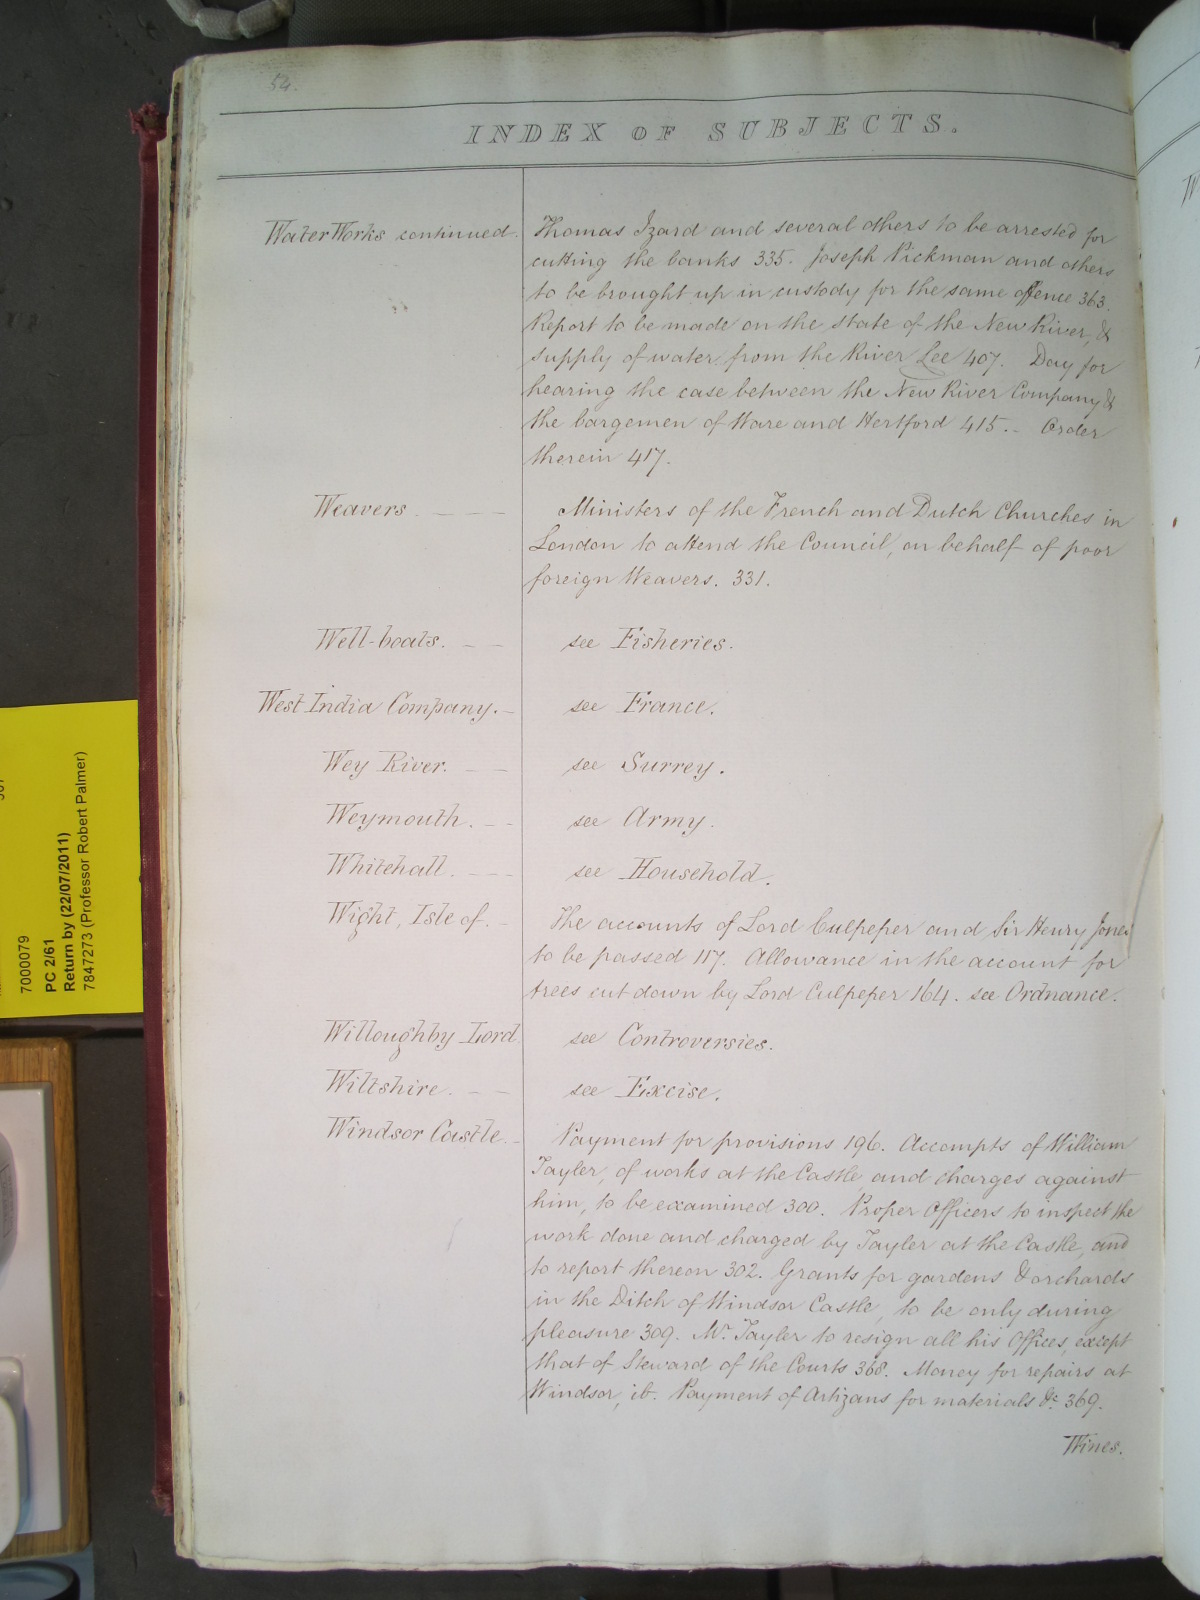 54.
INDEX OF SUBJECTS.
Water Works continued. Thomas Izard and several others to be arrested for
cutting the banks 335. Joseph Pickman and others
to be brought up in custody for the same offence 363.
Report to be made on the state of the New River, &
supply of water from the River Lee 407. Day for
hearing the case between the New River Company &
the bargemen of Ware and Hertford 415. - Order
therein 417.
Weavers - - - Ministers of the French and Dutch Churches in
London to attend the Council, on behalf of poor
foreign Weavers. 331.
Well-boats. - - see Fisheries.
West India Company. - see France.
Wey River. - - see Surrey.
Weymouth. - - see Army.
Whitehall. - - - see Household.
Wight, Isle of. The accounts of Lord Culpeper and Sir Henry Jones
to be passed 117. Allowance in the account for
trees cut down by Lord Culpeper 164. see Ordnance.
Willoughby Lord. see Controversies.
Wiltshire. - - see Excise.
Windsor Castle. - Payment for provisions 196. Accompts of William
Tayler, of works at the Castle and charges against
him, to be examined 300. Proper Officers to inspect the
work done and charged by Tayler at the Castle, and
to report thereon 302. Grants for gardens & orchards
in the Ditch of Windsor Castle, to be only during
pleasure 309. Mr. Tayler to resign all his Offices, except
that of Steward of the Courts 368. Money for repairs at
Windsor, ib. Payment of Artizans for materials &c 369.
Wines.
7000079
PC 2/61
Return by (22/07/2011)
7847273 (Professor Robert Palmer)